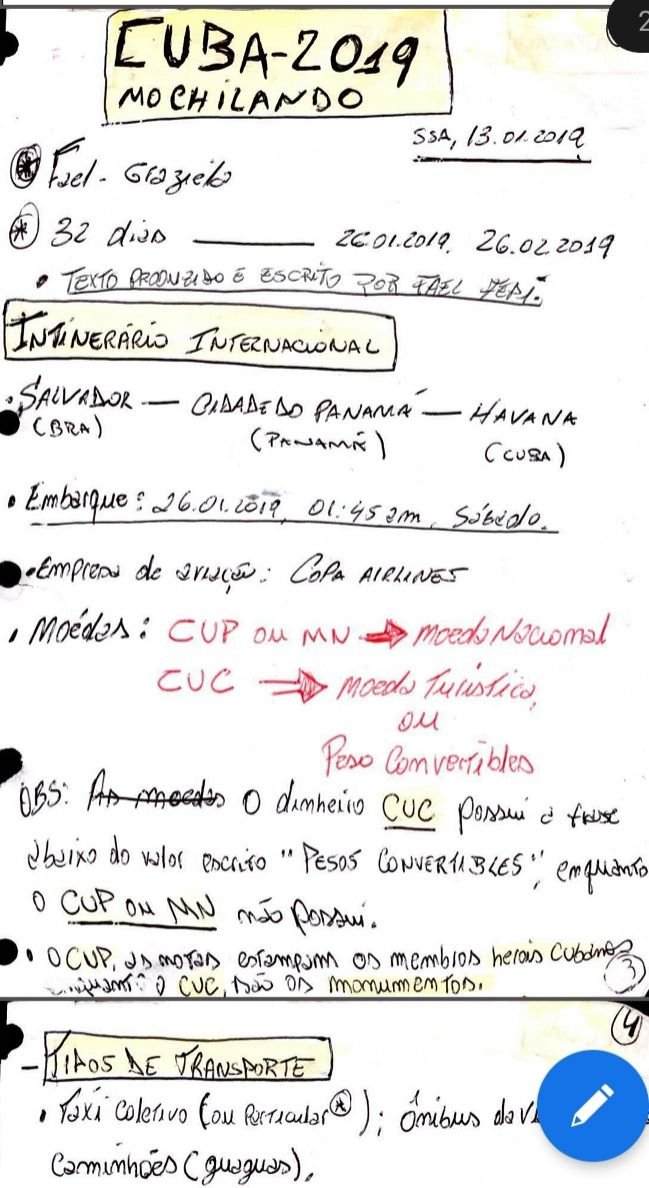 2
CUBA-2019
MOCHILANDO
SSA, 13.01.2019
Fael - Graziela
32 dias 26.01.2019. 26.02.2019
• TEXTO PRODUZIDO E ESCRITO POR FAEL
INTINERÁRIO INTERNACIONAL
• SALVADOR — CIDADE DO PANAMÁ — HAVANA
(BRA) (PANAMÁ) (CUBA)
• Embarque: 26.01.2019, 01:45 am, Sábado.
• Empresa de aviação: COPA AIRLINES
• Moédas: CUP ou MN → Moeda Nacional
CUC → Moeda Turística,
ou
Peso Convertibles
OBS: As moedas O dinheiro CUC possui a frase
abaixo do valor escrito "PESOS CONVERTIBLES", enquanto
o CUP ou MN não possui.
• O CUP, as notas estampam os membros herois cubanos
enquanto o CUC, são os monumentos.
3
4
- TIPOS DE TRANSPORTE
• Taxi coletivo (ou Particular *); ônibus da
Caminhões (guaguas),